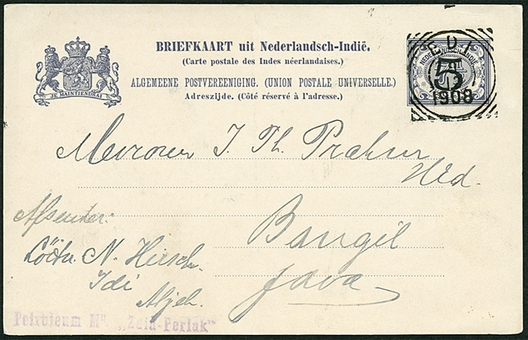 BRIEFKAART uit Nederlandsch-Indië.
(Carte postale des Indes néerlandaises.)
ALGEMEENE POSTVEREENIGING. (UNION POSTALE UNIVERSELLE.)
Adreszijde. (Côté réservé à l'adresse.)
JE MAINTIENDRAI
EDI
5
1908
Mevrouw J. Th.
Wed.
Bangil
Java
Afsender:
N. Hirsch.
Idi
Atjeh.
Petroleum Mij „Zuid-Perlak"